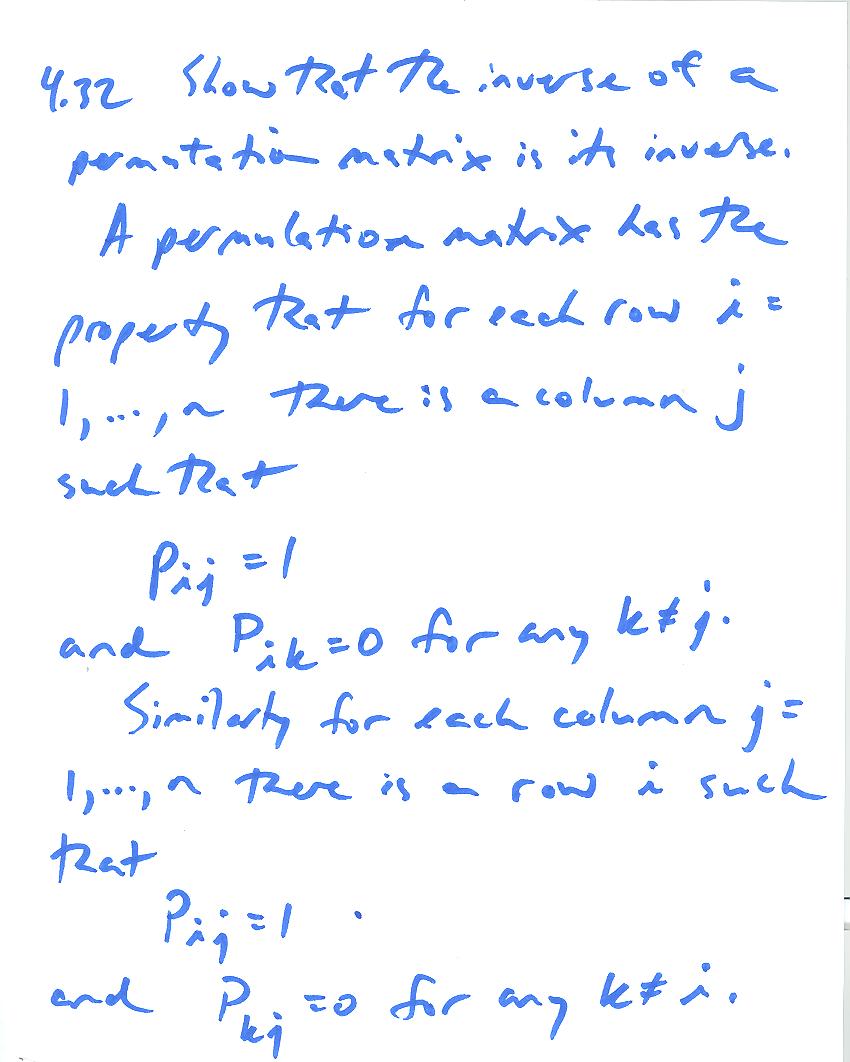 4.32 Show that the inverse of a
permutation matrix is its inverse.
A permutation matrix has the
property that for each row i =
1, ..., n there is a column j
such that
Pij = 1
and Pik = 0 for any k ≠ j.
Similarly for each column j =
1, ..., n there is a row i such
that
Pij = 1
and Pkj = 0 for any k ≠ i.